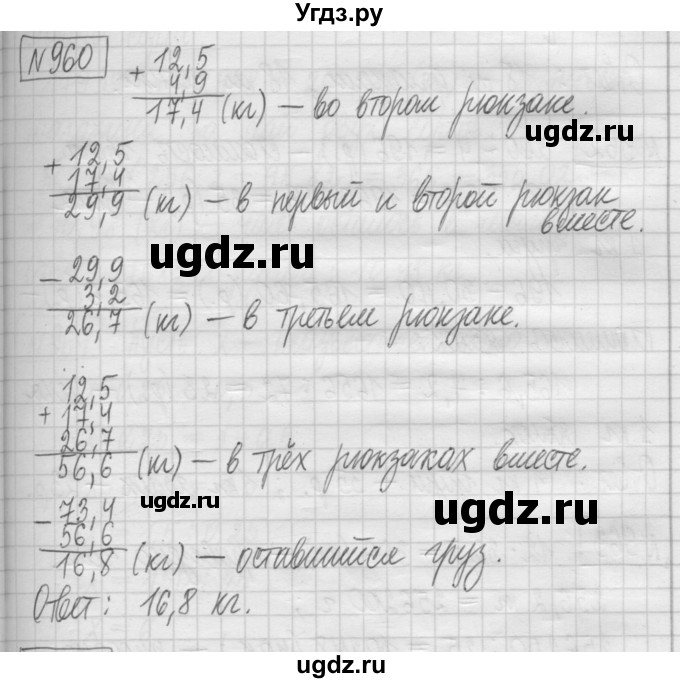 Угдз.ру
N960
+ 12,5
4,9
17,4 (кг) – во втором рюкзаке.
ugdz.ru
+ 12,5
17,4
29,9 (кг) – в первый и второй рюкзак
вместе.
ugdz.ru
– 29,9
3,2
26,7 (кг) – в третьем рюкзаке.
ugdz.ru
12,5
+ 17,4
26,7
56,6 (кг) – в трёх рюкзаках вместе.
ugdz.ru
ugdz.ru
– 73,4
56,6
16,8 (кг) – оставшийся груз.
Ответ: 16,8 кг.
ugdz.ru